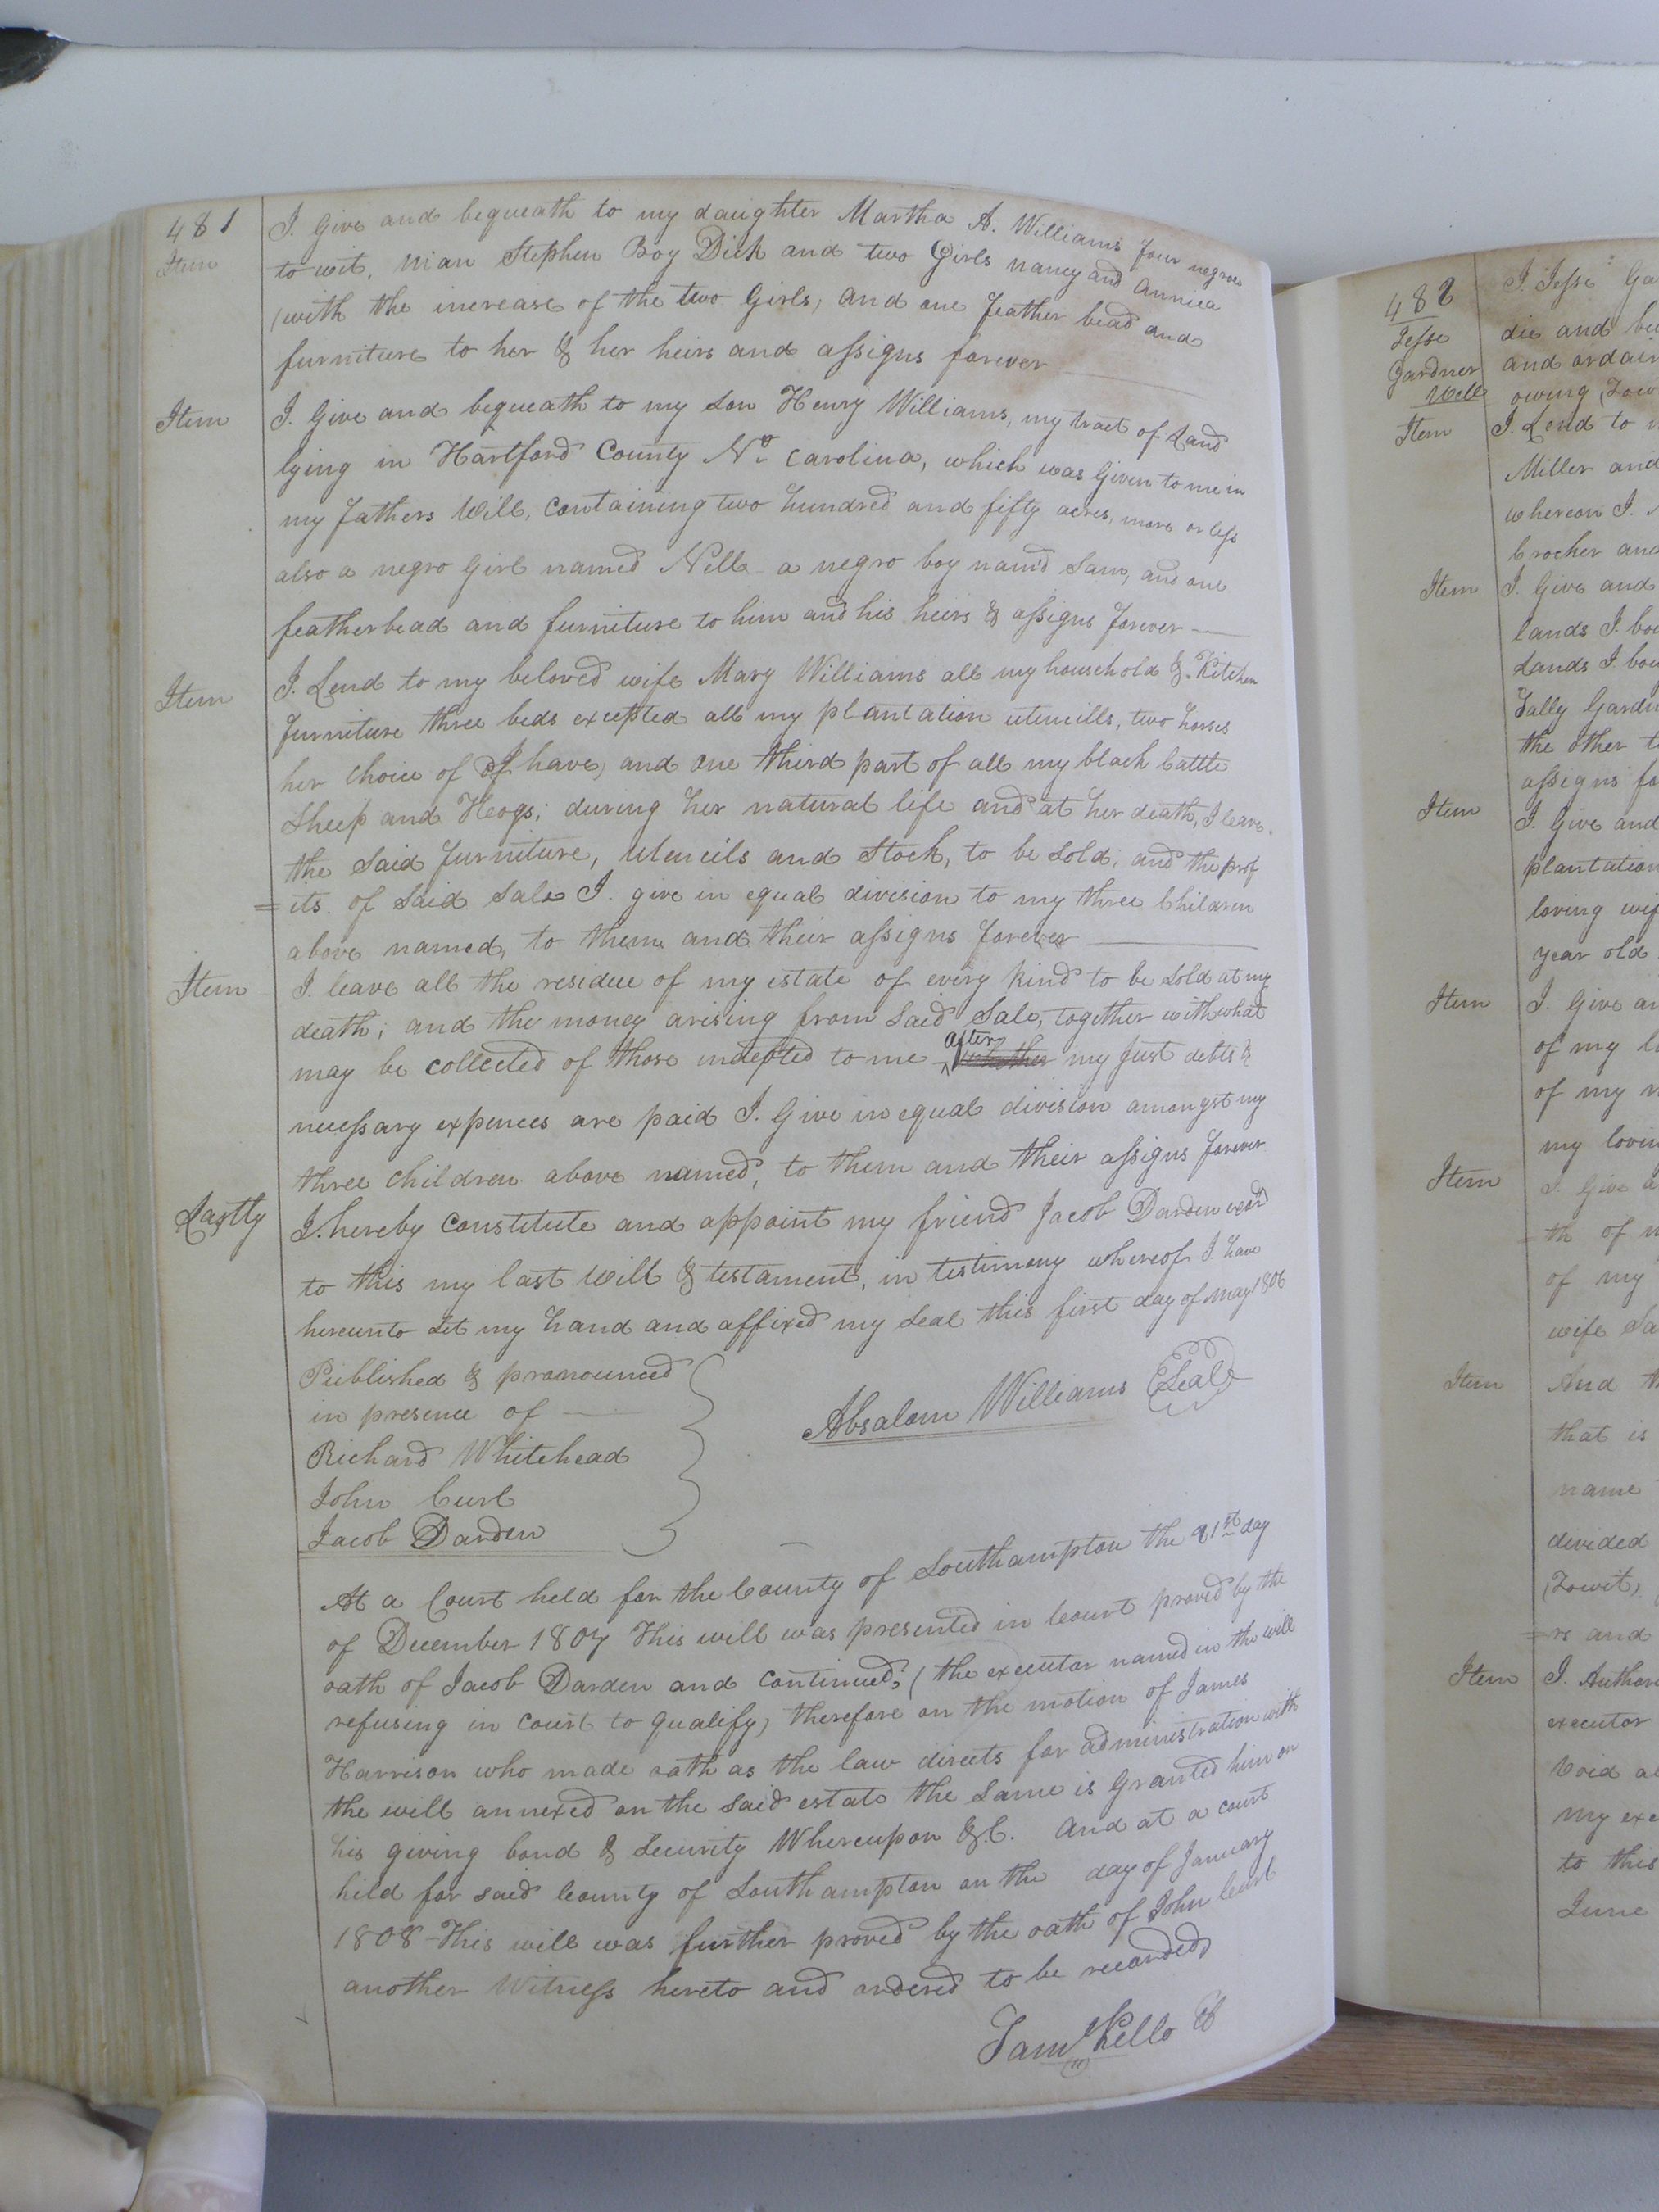 481
Item I. Give and bequeath to my daughter Martha A. Williams four negroes
to wit, man Stephen Boy Dick and two Girls nancy and Annica
(with the increase of the two Girls, and one feather bead and
furniture to her & her heirs and assigns forever
Item I. Give and bequeath to my son Henry Williams, my tract of Land
lying in Hartford County No. Carolina, which was Given to me in
my fathers Will, Containing two hundred and fifty acres, more or less
also a negro Girl named Nell - a negro boy nam'd Sam, and one
featherbead and furniture to him and his heirs & assigns forever
Item I. Lend to my beloved wife Mary Williams all my household & Kitchen
furniture three beds excepted all my plantation utencills, two horses
her choice of if I have, and one third part of all my black Cattle
Sheep and Hoogs; during her natural life and at her death, I leave
the Said furniture, Utencils and Stock, to be Sold; and the prof
=its. of Said Sale I. give in equal division to my three Children
above named, to them and their assigns forever
Item I. leave all the residue of my estate of every kind to be Sold at my
death; and the money arising from Said Sale, together with what
may be collected of those indepted to me after whether my just debts &
necessary expences are paid I. Give in equal division amongst my
three children above named, to them and their assigns forever
Lastly I. hereby Constitute and appoint my friend Jacob Darden exor
to this my last Will & testament, in testimony whereof I. have
hereunto Set my hand and affixed my Seal this first day of May 1806
Published & pronounced
in presence of
Absalom Williams (Seal)
Richard Whitehead
John Curl
Jacob Darden
At a Court held for the County of Southampton the 21st day
of December 1807 This will was presented in Court proved by the
oath of Jacob Darden and Continued, (the executor named in the will
refusing in Court to qualify) therefore on the motion of James
Harrison who made oath as the law directs for administration with
the will annexed on the said estate the Same is Granted him on
his giving bond & Security Whereupon &C. And at a court
held for said County of Southampton on the day of January
1808 This will was further proved by the oath of John Curl
another Witness hereto and ordered to be recorded,
Saml Kello
482
Jesse
Gardner
Will
I. Jesse
die and
and
owing
Item I. Lend to
Miller and
whereon I.
and
Item I. Give and
lands I.
Lands I.
Sally
the other
assigns
Item I. Give and
plantation
loving
year old
Item I. Give
of my
of my
my
Item I. Give
=th of
of my
wife
Item And
that is
name
devided
(Towit)
=rs and
Item I.
executor
void
my
to this
June